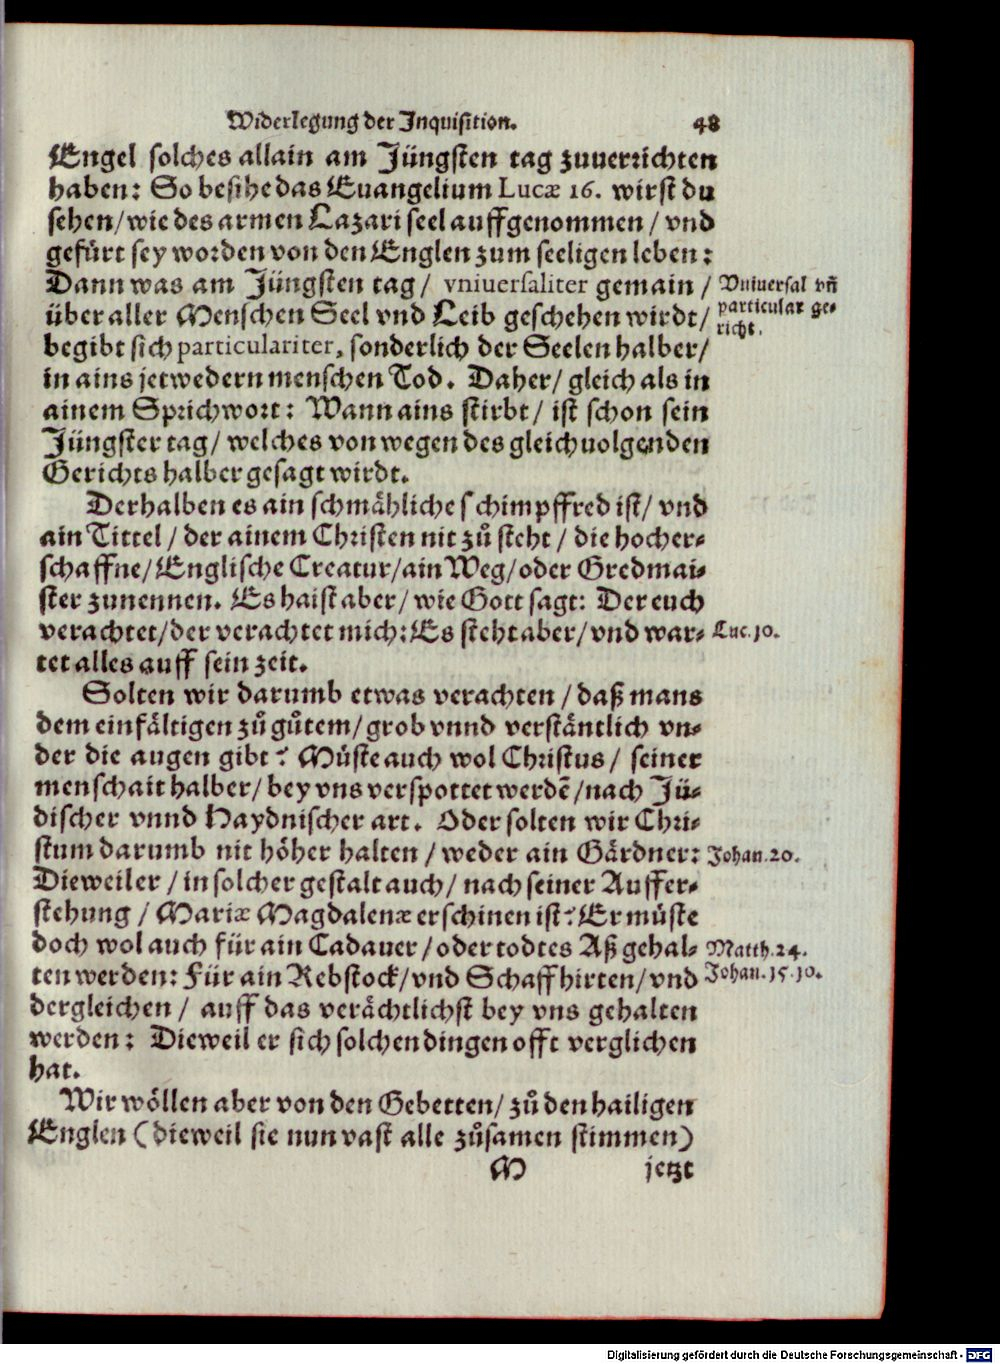 Widerlegung der Inquisition. 48
Engel solches allain am Jüngsten tag zuuerrichten
haben: So besihe das Euangelium Lucæ 16. wirst du
sehen/wie des armen Lazari seel auffgenommen / vnd
gefürt sey worden von den Englen zum seeligen leben:
Dann was am Jüngsten tag/ vniuersaliter gemain /
über aller Menschen Seel vnd Leib geschehen wirdt/
begibt sich particulariter, sonderlich der Seelen halber/
in ains jetwedern menschen Tod. Daher/ gleich als in
ainem Sprichwort: Wann ains stirbt/ ist schon sein
Jüngster tag/ welches von wegen des gleich uolgenden
Gerichts halber gesagt wirdt.
Vniuersal vñ
particular ge-
richt.
Derhalben es ain schmähliche schimpffred ist/ vnd
ain Tittel / der ainem Christen nit zů steht / die hocher-
schaffne/ Englische Creatur/ain Weg/oder Gredmai-
ster zunennen. Es haist aber/ wie Gott sagt: Der euch
verachtet/der verachtet mich: Es steht aber/ vnd war-
tet alles auff sein zeit.
Luc. 10.
Solten wir darumb etwas verachten / daß mans
dem einfältigen zů gůtem/ grob vnnd verständlich vn-
der die augen gibt? Müste auch wol Christus / seiner
menschait halber/ bey vns verspottet werdē /nach Jü-
discher vnnd Haydnischer art. Oder solten wir Chri-
stum darumb nit höher halten / weder ain Gärdner:
Dieweil er / in solcher gestalt auch/ nach seiner Auffer-
stehung / Mariæ Magdalenæ erschinen ist? Er müste
doch wol auch für ain Cadauer / oder todtes Aß gehal-
ten werden: Für ain Rebstock/vnd Schaffhirten/ vnd
dergleichen / auff das verächtlichst bey vns gehalten
werden: Dieweil er sich solchen dingen offt verglichen
hat.
Johan. 20.
Matth. 24.
Johan. 15. 10.
Wir wöllen aber von den Gebetten/ zů den hailigen
Englen (dieweil sie nun vast alle zůsamen stimmen)
M jetzt
Digitalisierung gefördert durch die Deutsche Forschungsgemeinschaft - DFG